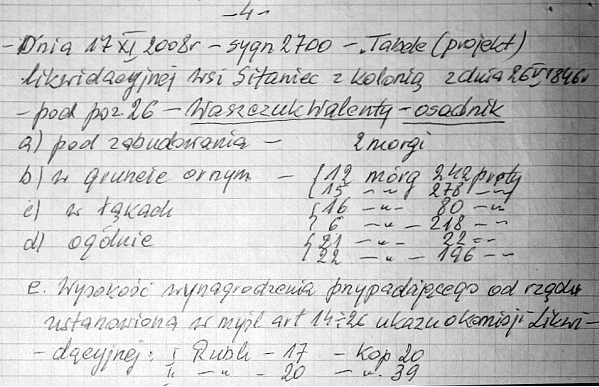 -4-
- Dnia 17 XI 2008r - sygn 2700 - Tabele (projekt)
likwidacyjnej wsi Sitaniec z kolonią z dnia 26 VI 1846r
- pod poz 26 - Waszczuk Walenty - osadnik
a) pod zabudowania - 2 morgi
b) w gruncie ornym - { 12 mórg 242 pręty
{ 15 -"- 278 -"-
c) w łąkach { 16 -"- 80 -"-
{ 6 -"- 218 -"-
d) ogólnie { 21 -"- 22 -"-
{ 22 -"- 196 -"-
e. Wysokość wynagrodzenia przypadającego od rządu
ustanowioną w myśl art 14 i 26 ukazu o komisji Likwi-
- dacyjnej: I Rubli - 17 - Kop 20
II -"- - 20 -"- 39